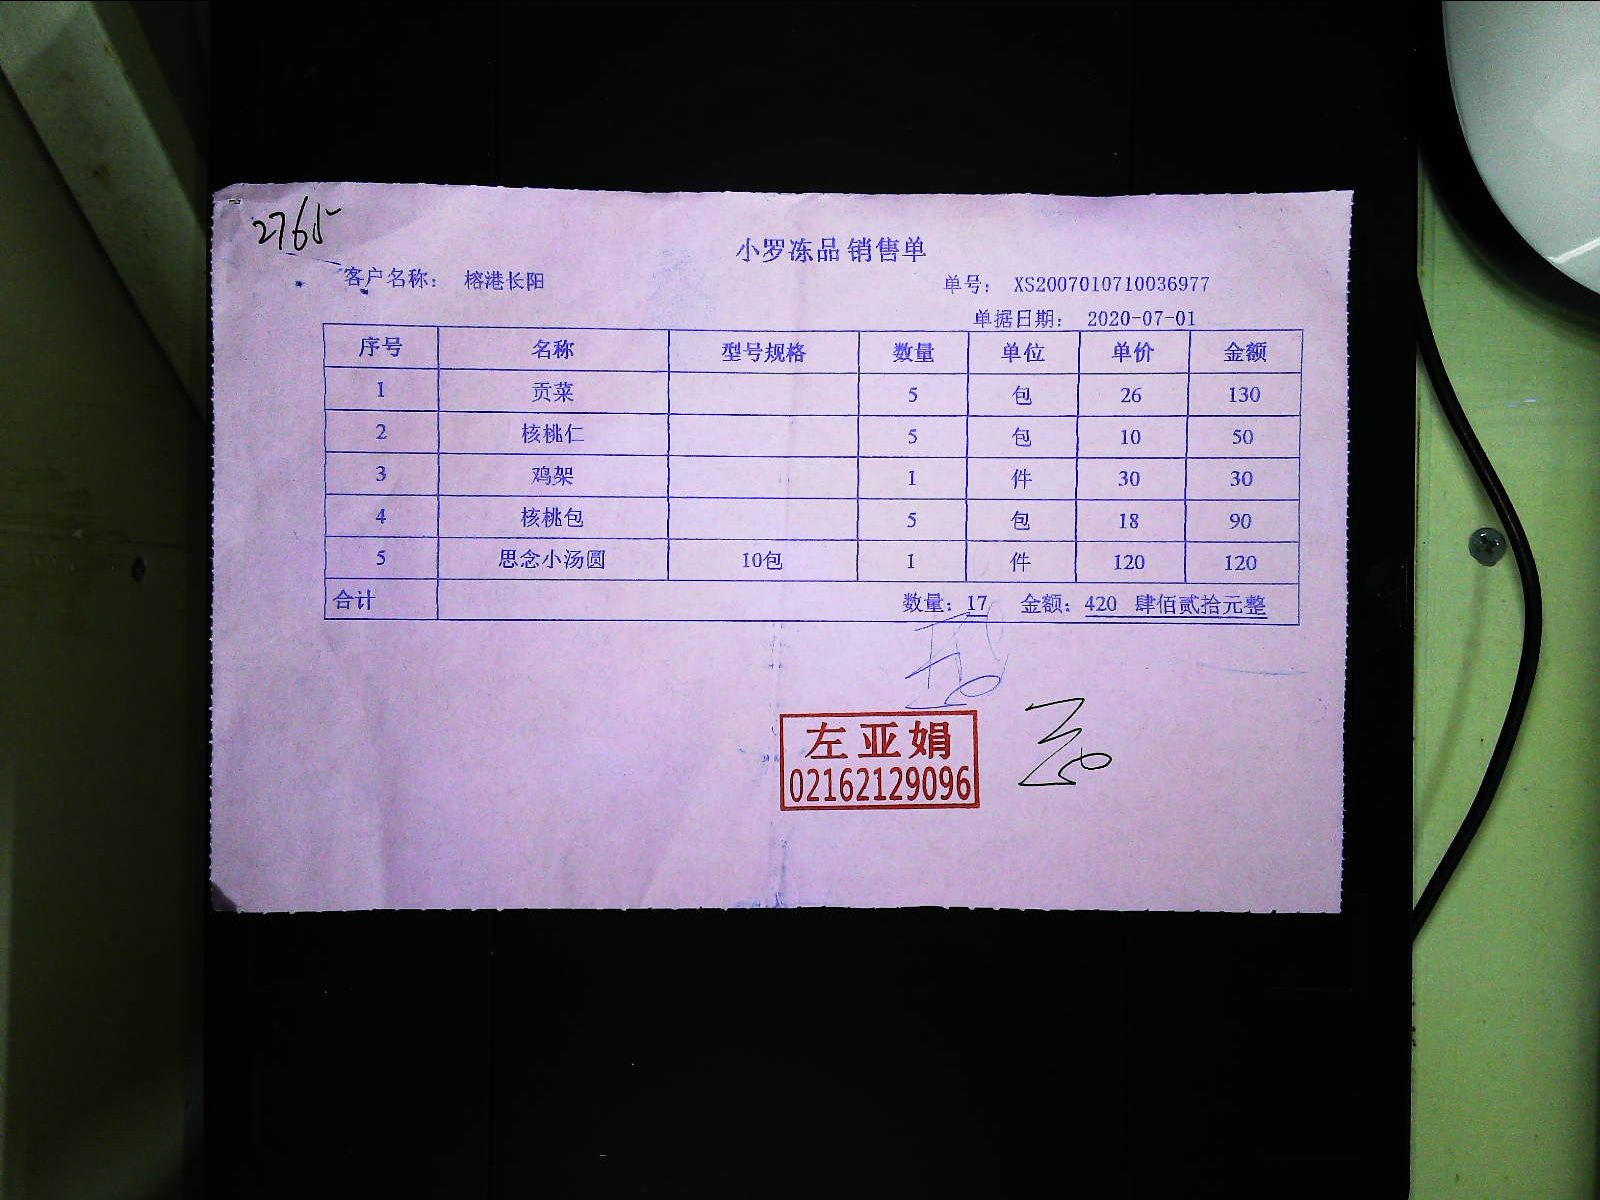 2765
小罗冻品 销售单
客户名称: 榕港长阳 单号: XS2007010710036977
单据日期: 2020-07-01
序号 名称 型号规格 数量 单位 单价 金额
1 贡菜 5 包 26 130
2 核桃仁 5 包 10 50
3 鸡架 1 件 30 30
4 核桃包 5 包 18 90
5 思念小汤圆 10包 1 件 120 120
合计 数量: 17 金额: 420 肆佰贰拾元整
左亚娟
02162129096